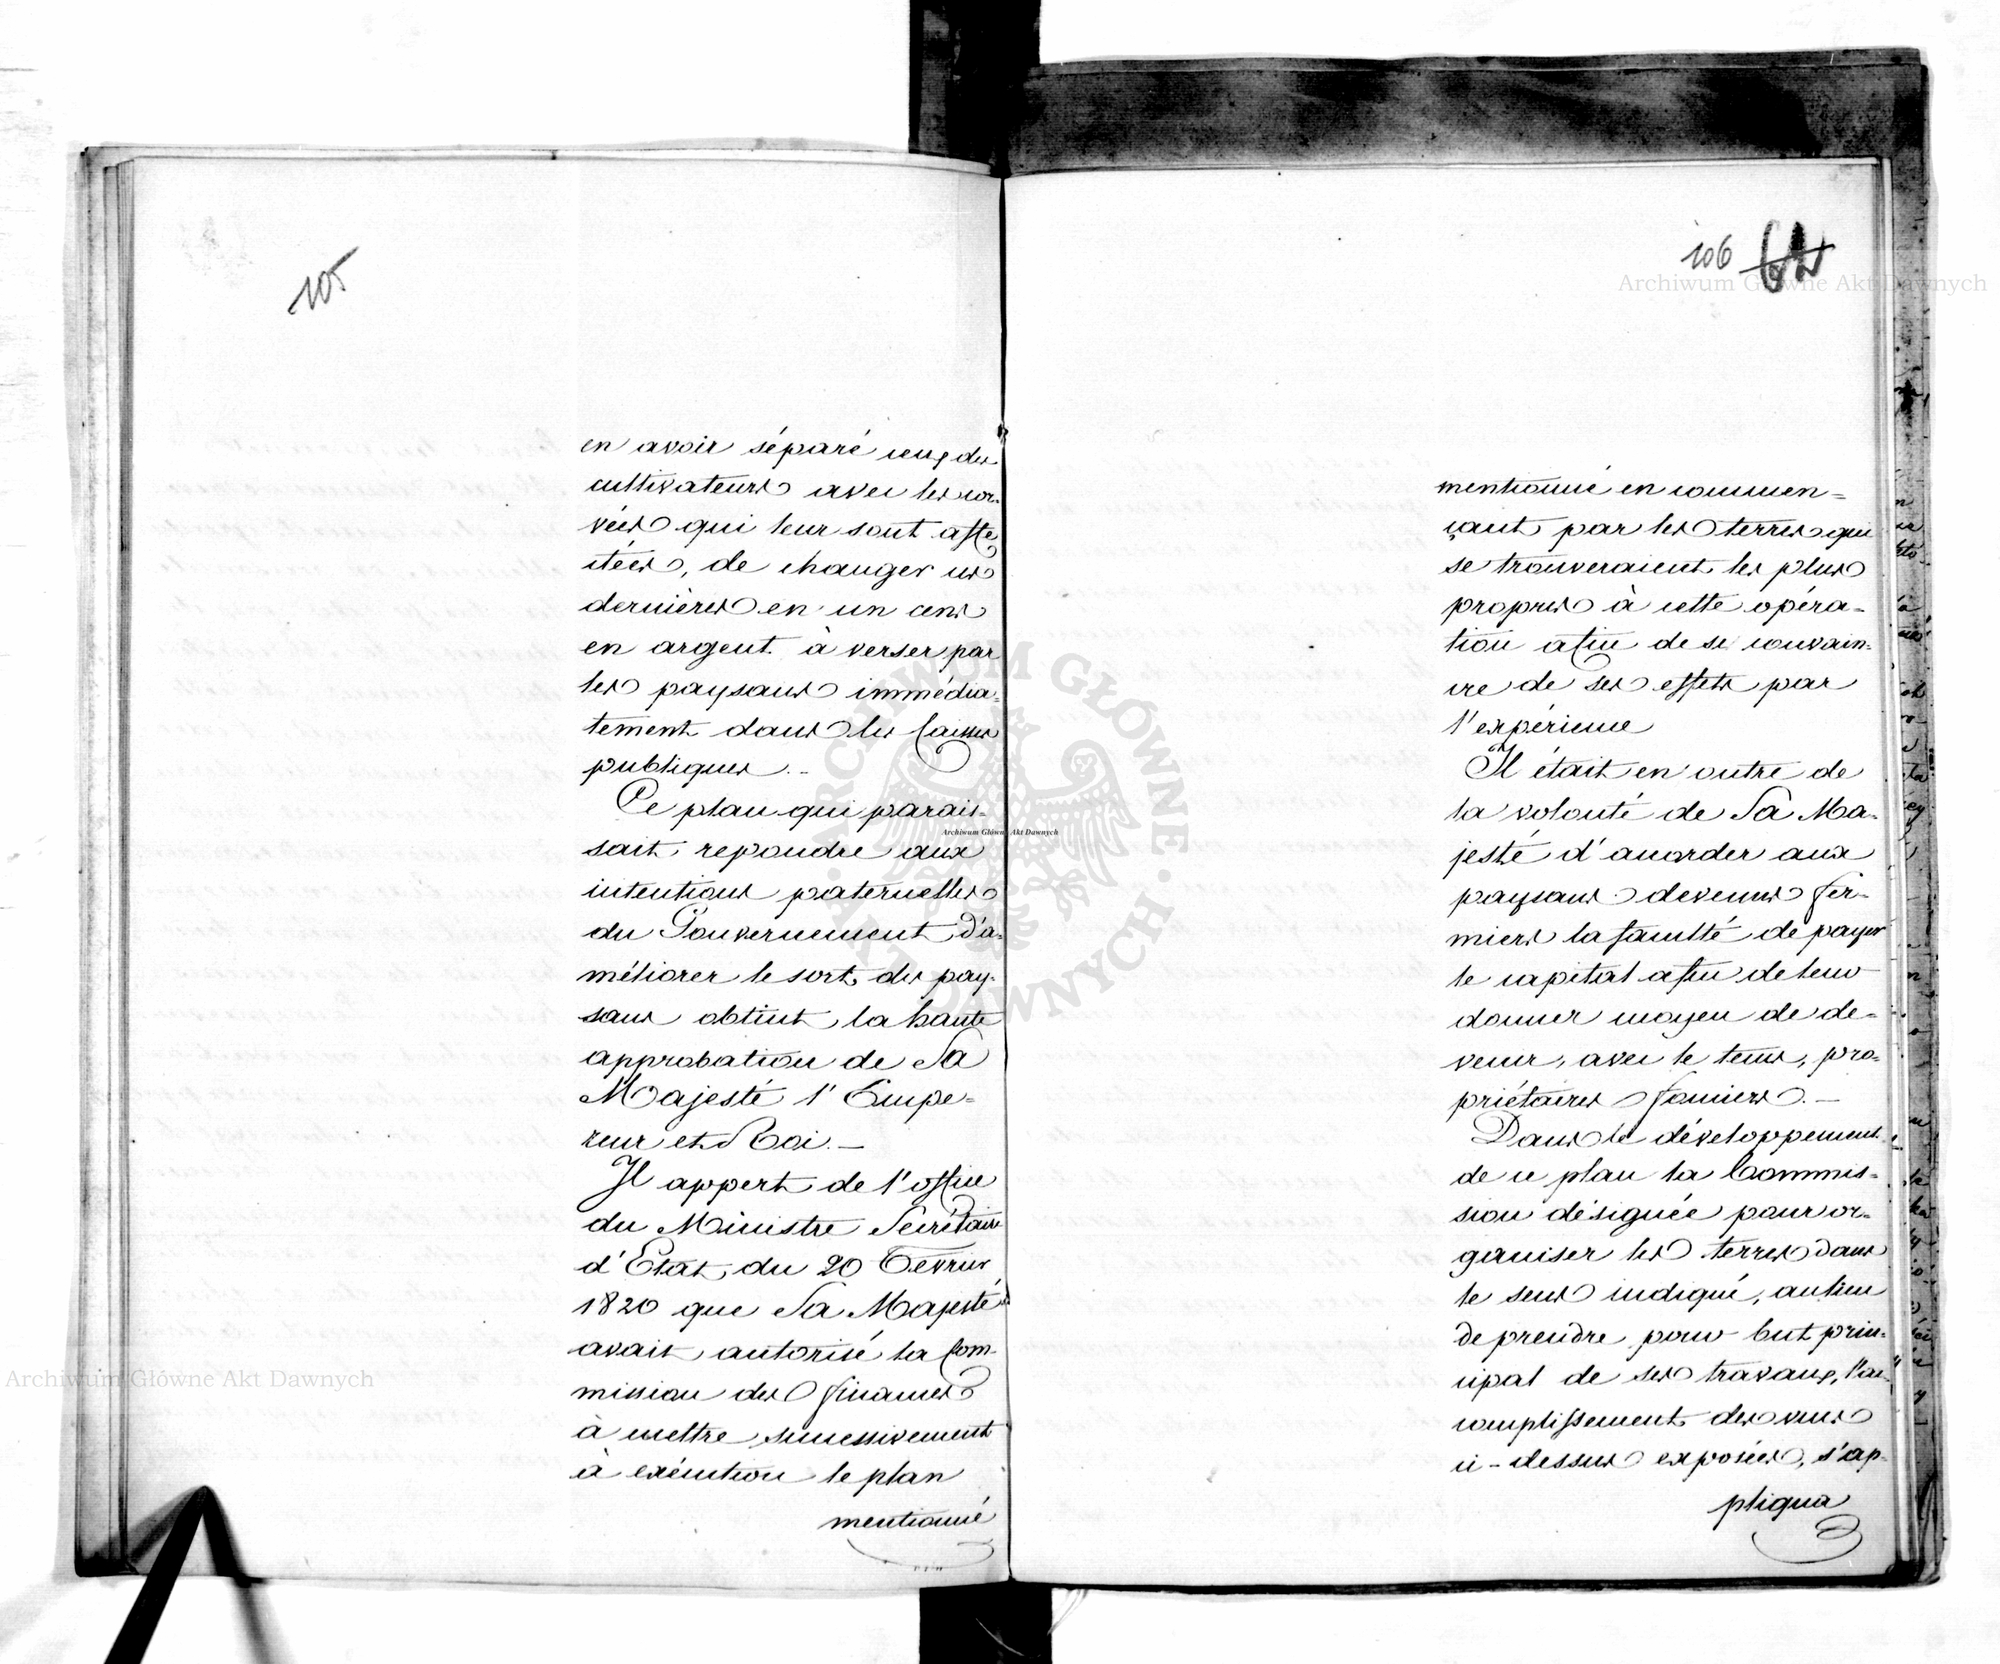 105
en avoir séparé ceux des
cultivateurs avec les cor-
vées qui leur sont affe
ctées, de changer ces
dernières en un cens
en argent à verser par
les paysans immédia-
tement dans les Caisses
publiques. -
Ce plan qui parais-
sait repondre aux
intentions paternelles
du Gouvernement d'a-
méliorer le sort des pay-
sans obtint la haute
approbation de Sa
Majesté l'Empe=
reur et Roi. —
Il appert de l'office
du Ministre Secrétaire
d'Etat du 20 Fevrier
1820 que Sa Majesté
avait autorisé la Com-
mission des finances
à mettre successivement
à exécution le plan
mentionné
106 64
mentionné en commen=
çant par les terres qui
se trouveraient les plus
propres à cette opéra=
tion afin de se convain-
cre de ses effets par
l'expérience
Il était en outre de
la volonté de Sa Ma-
jesté d'accorder aux
paysans devenus fer-
miers la faculté de payer
le capital afin de leur
donner moyen de de=
venir, avec le tems, pro=
priétaires fonciers. —
Dans le développement
de ce plan la Commis=
sion désignée pour or=
ganiser les terres dans
le sens indiqué, au lieu
de prendre pour but prin-
cipal de ses travaux, l'ac-
complissement des vues
ci-dessus exposées, s'ap-
pliqua
Archiwum Główne Akt Dawnych
Archiwum Główne Akt Dawnych
Archiwum Główne Akt Dawnych
ARCHIWUM GŁÓWNE AKT DAWNYCH